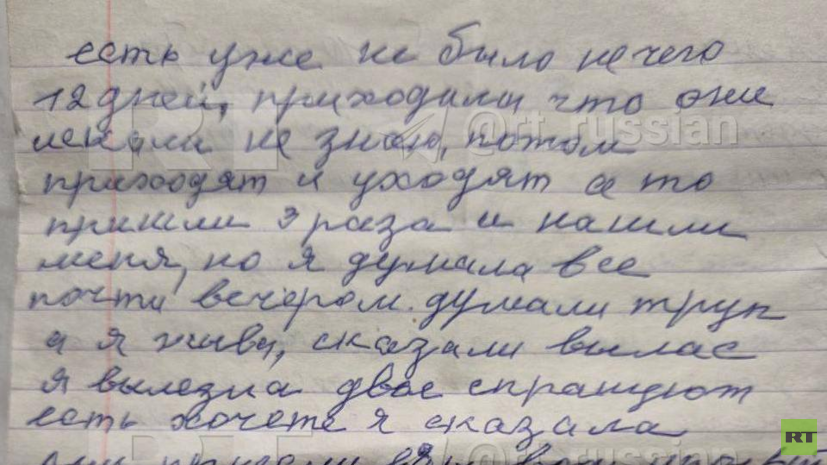 есть уже не было нечего
12 дней, приходили что они
искали не знаю, потом
приходят и уходят а то
пришли 3 раза и нашли
меня, но я думала все
почти вечером. думали труп
а я жива, сказали вылас
я вылезла двое спрашуют
есть хочете я сказала
RT
@rt_russian
RT
@rt_russian
RT